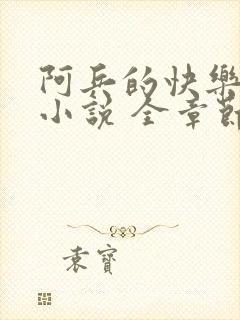 阿兵的快樂
小說 全章節
袁寶